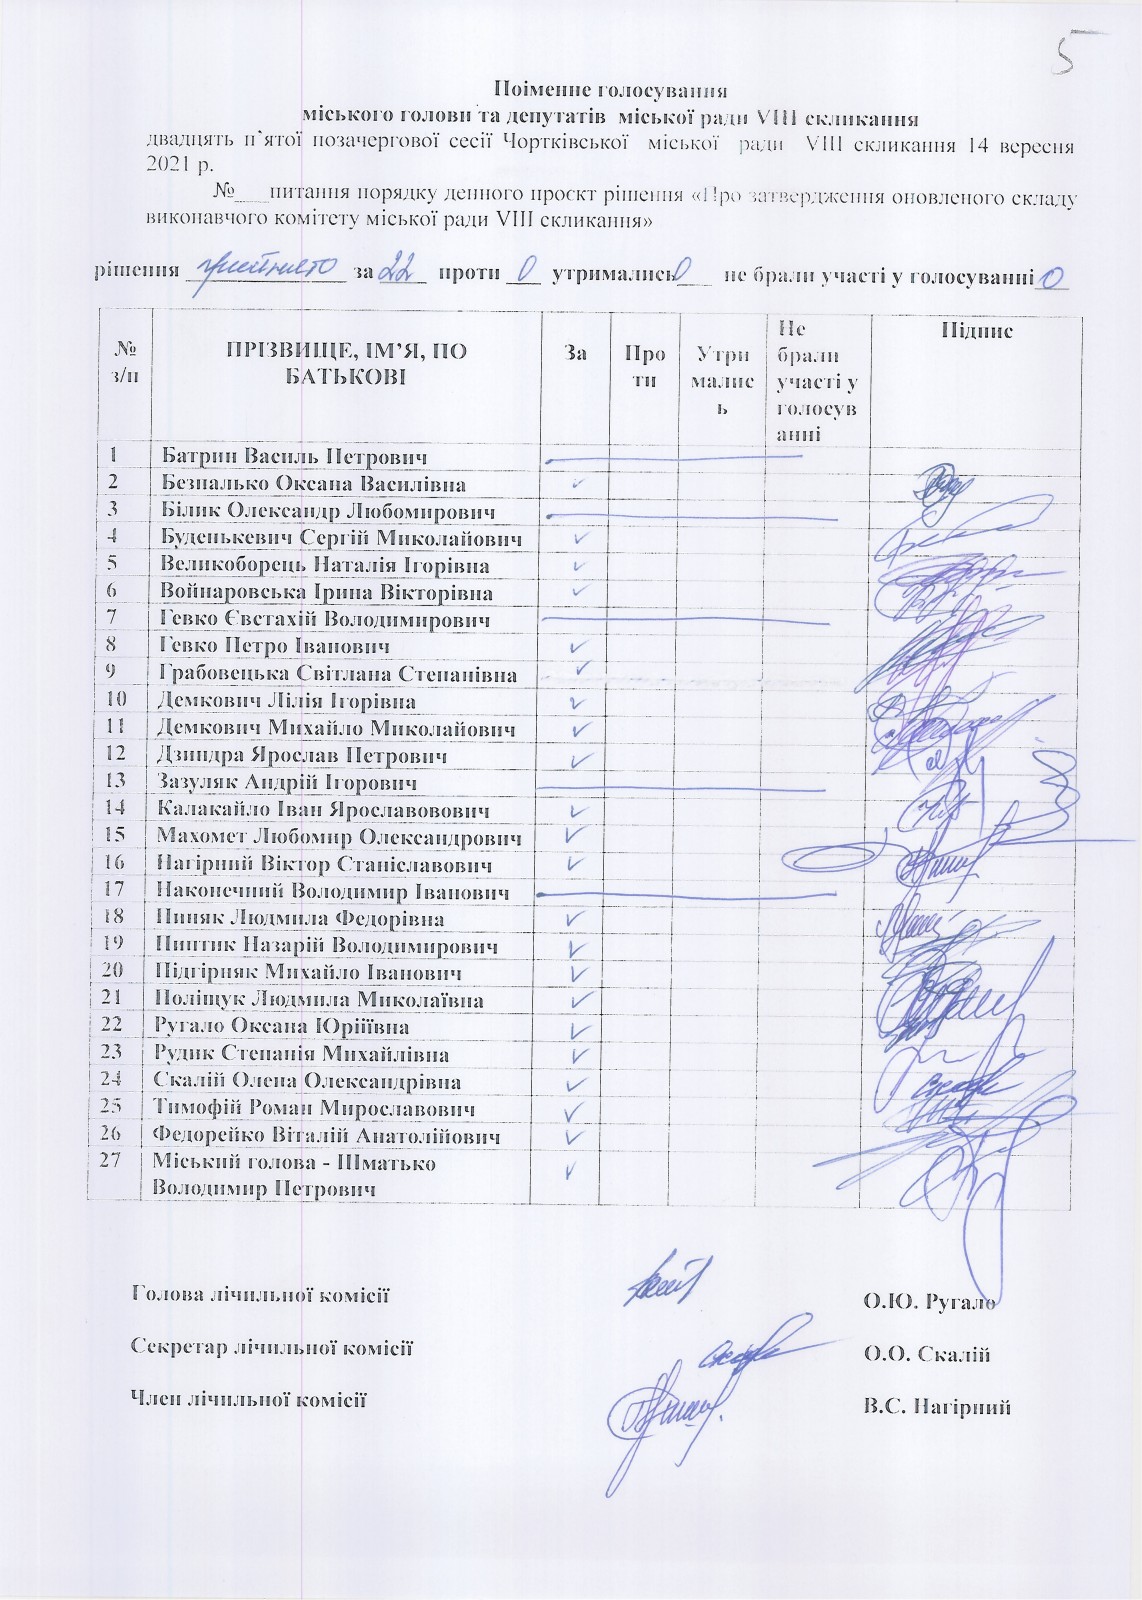 5
Поіменне голосування
міського голови та депутатів міської ради VIII скликання
двадцять п`ятої позачергової сесії Чортківської міської ради VIII скликання 14 вересня
2021 р.
№___питання порядку денного проєкт рішення «Про затвердження оновленого складу
виконавчого комітету міської ради VIII скликання»
рішення прийнято за 22 проти 0 утримались 0 не брали участі у голосуванні 0
№ з/п
ПРІЗВИЩЕ, ІМ’Я, ПО БАТЬКОВІ
За
Про ти
Утри малис ь
Не брали участі у голосув анні
Підпис
1 Батрин Василь Петрович
2 Безпалько Оксана Василівна ✓
3 Білик Олександр Любомирович
4 Буденькевич Сергій Миколайович ✓
5 Великоборець Наталія Ігорівна ✓
6 Войнаровська Ірина Вікторівна ✓
7 Гевко Євстахій Володимирович
8 Гевко Петро Іванович ✓
9 Грабовецька Світлана Степанівна ✓
10 Демкович Лілія Ігорівна ✓
11 Демкович Михайло Миколайович ✓
12 Дзиндра Ярослав Петрович ✓
13 Зазуляк Андрій Ігорович
14 Калакайло Іван Ярославовович ✓
15 Махомет Любомир Олександрович ✓
16 Нагірний Віктор Станіславович ✓
17 Наконечний Володимир Іванович
18 Пиняк Людмила Федорівна ✓
19 Пиптик Назарій Володимирович ✓
20 Підгірняк Михайло Іванович ✓
21 Поліщук Людмила Миколаївна ✓
22 Ругало Оксана Юріївна ✓
23 Рудик Степанія Михайлівна ✓
24 Скалій Олена Олександрівна ✓
25 Тимофій Роман Мирославович ✓
26 Федорейко Віталій Анатолійович ✓
27 Міський голова - Шматько ✓
Володимир Петрович
Голова лічильної комісії О.Ю. Ругало
Секретар лічильної комісії О.О. Скалій
Член лічильної комісії В.С. Нагірний